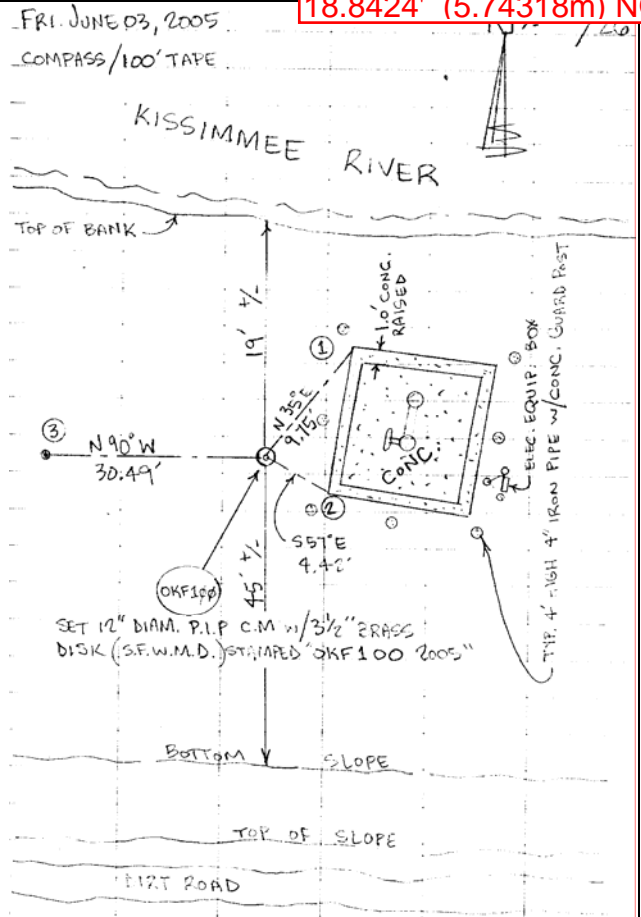 18.8424' (5.74318m)
FRI. JUNE 03, 2005
COMPASS/100' TAPE
KISSIMMEE RIVER
TOP OF BANK
19' +/-
1.0' CONC.
RAISED
1
N35°E
9.75'
3
N90°W
30.49'
CONC.
2
S57°E
4.42'
ELEC. EQUIP. BOX
TYP. 4' HIGH 4" IRON PIPE W/CONC. GUARD POST
OKF100
45' +/-
SET 12" DIAM. P.I.P C.M W/3½" BRASS
DISK (S.F.W.M.D.) STAMPED "OKF100 2005"
BOTTOM SLOPE
TOP OF SLOPE
DIRT ROAD